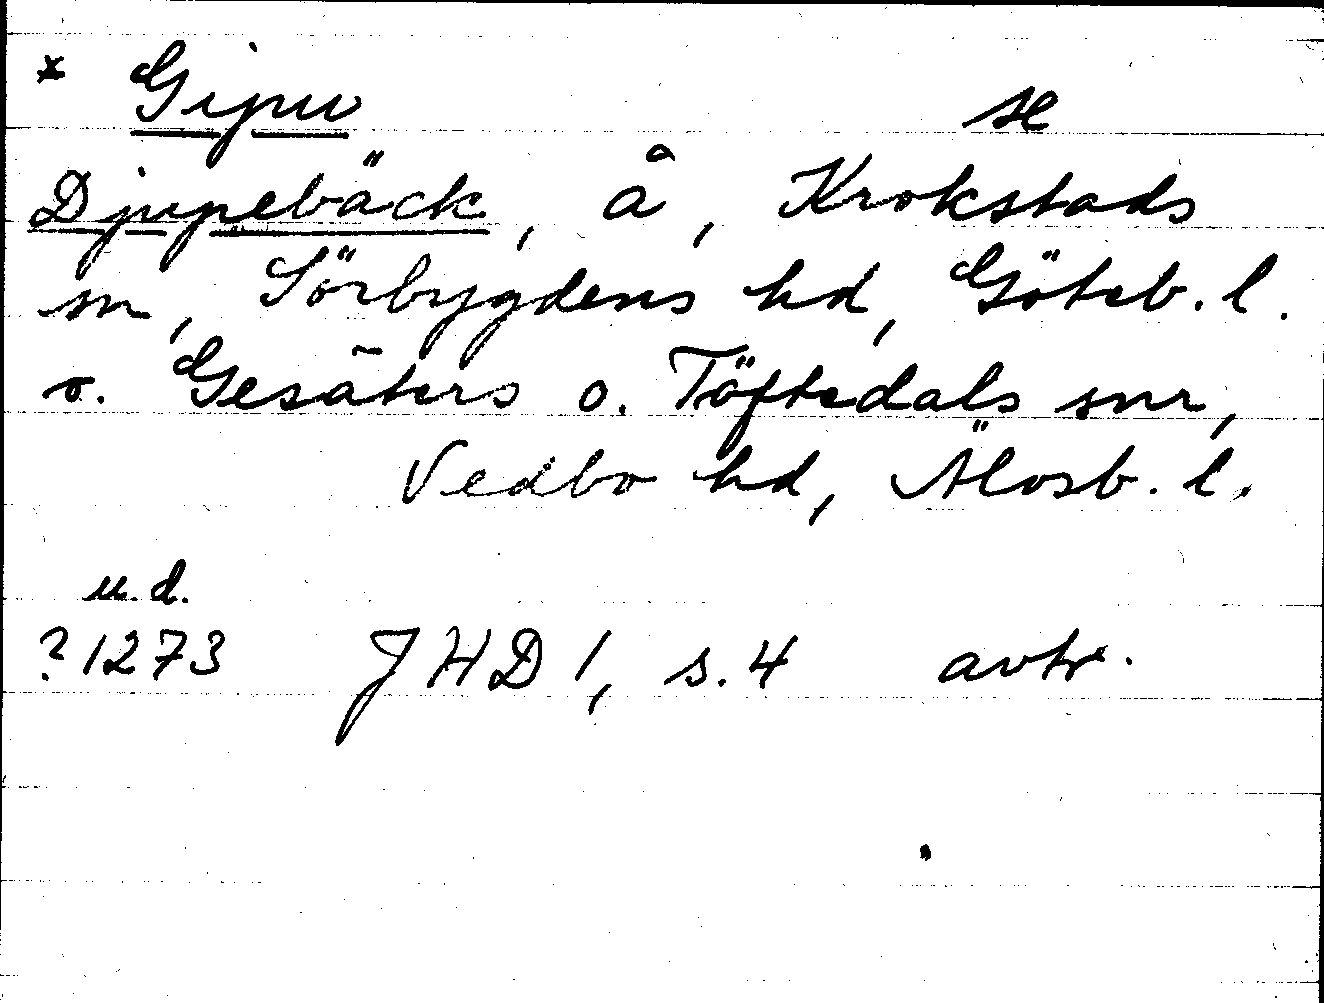 * Gipu se
Djupebäck, å, Krokstads
sn, Sörbygdens hd, Göteb. l.
o. Gesäters o. Töftedals snr,
Vedbo hd, Älvsb. l.
u.d.
?1273 JHD 1, s.4 avtr.